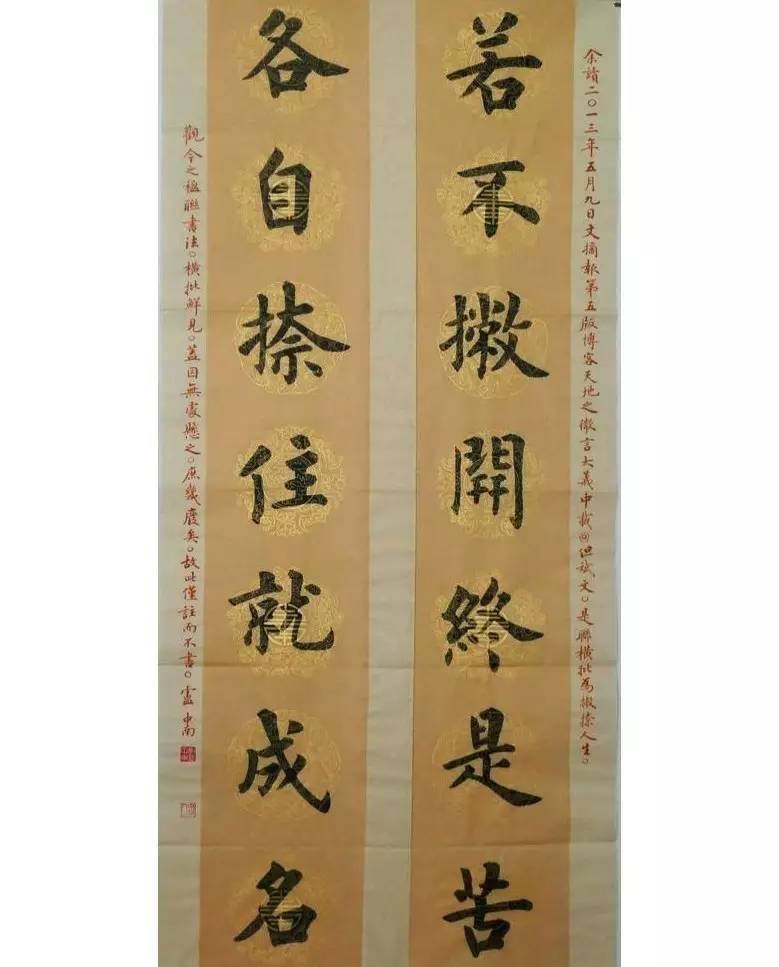 余讀二〇一三年五月九日文摘報第五版博客天地之微言大義中載@但斌文。是聯橫批為撇捺人生。
若不撇開終是苦
各自捺住就成名
觀今之楹聯書法。橫批鮮見。蓋因無處懸之。庶幾廢矣。故此僅註而不書。盧中南